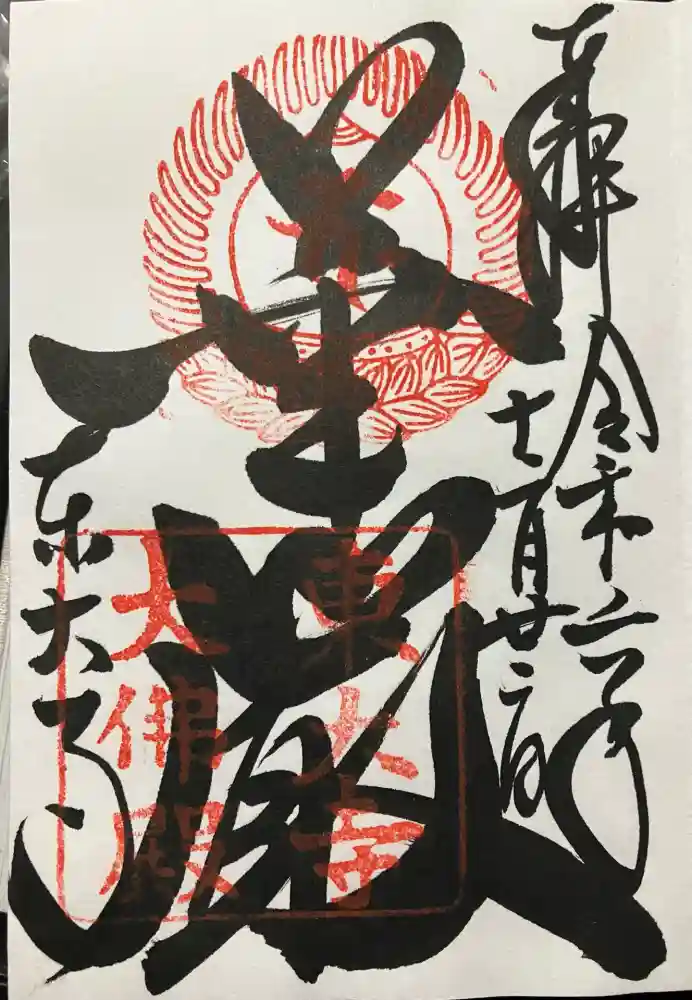 奉拝
令和二年
十一月廿二日
華厳
東大寺
東大寺
大佛殿